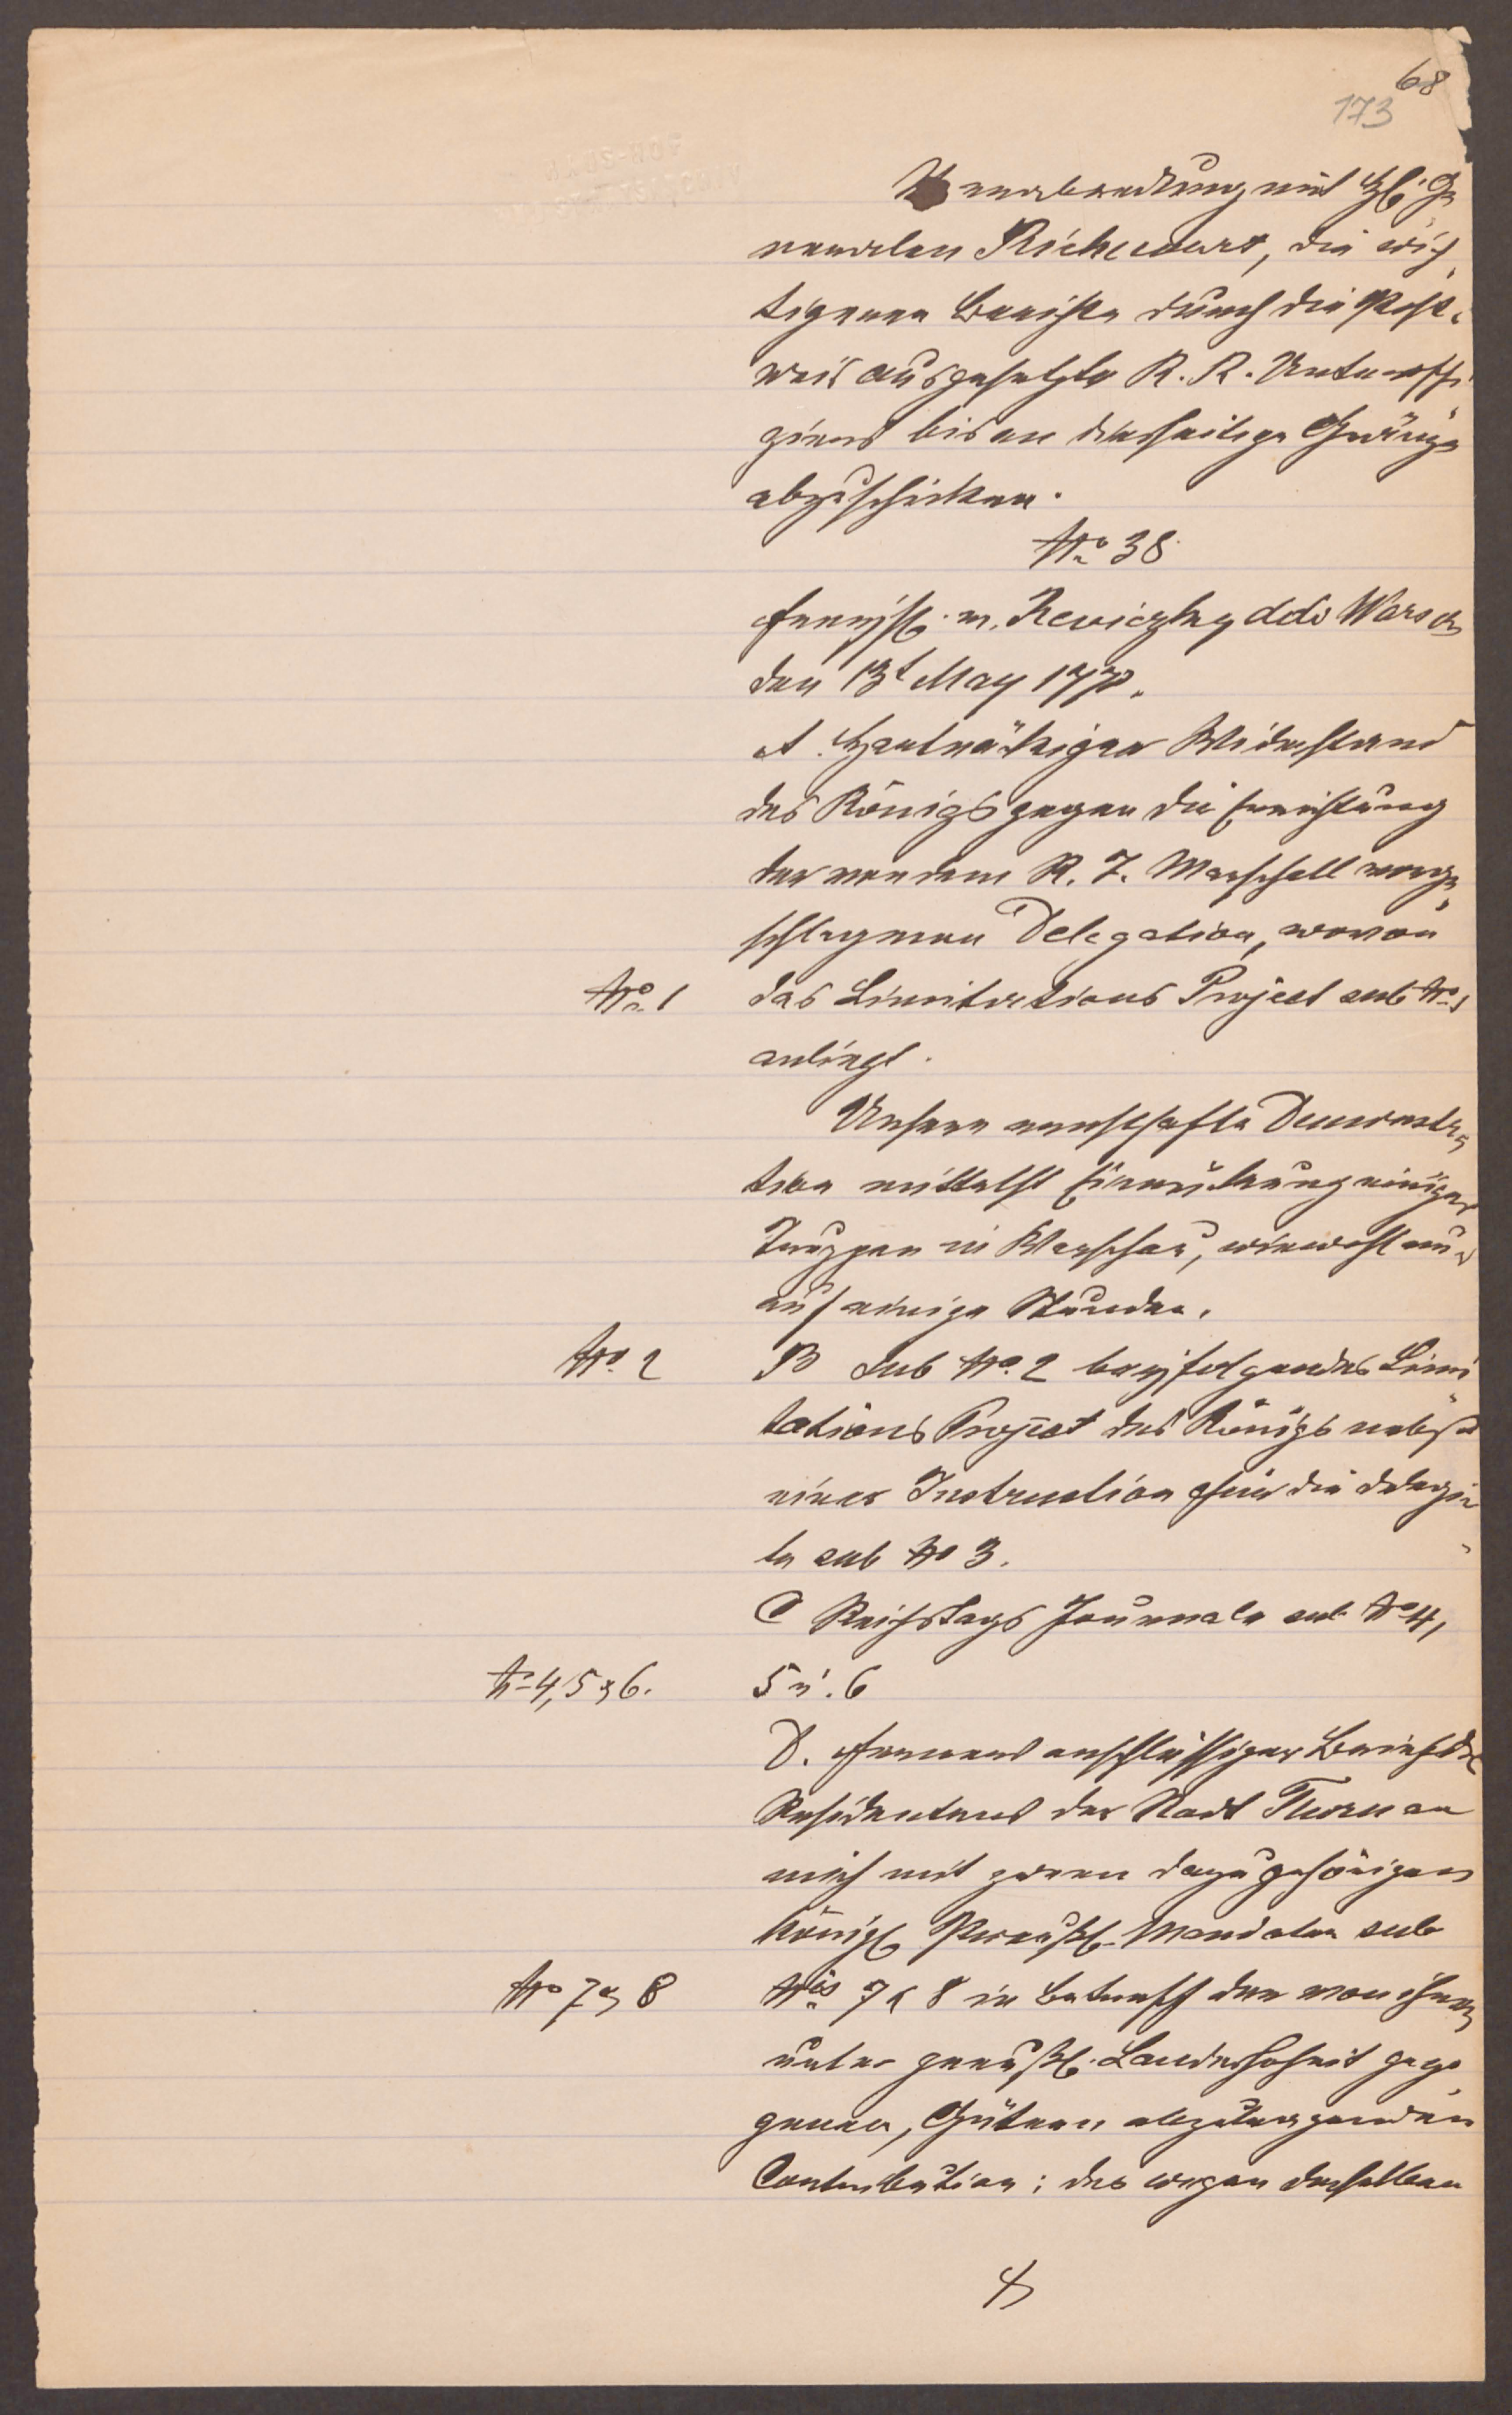 68
173
Verabredung mit H. Ge
neralen Richecourt, die wich
tigeren Berichte durch die Post
weis ausgesetzte K. K. Unteroffi
ziers bis an diesseitige Gränze
abzuschicken.
No 38
H. v. Reviczky ddo Warsch
den 13t May 177
A. Hartnäkiger Widerstand
des Königs gegen die Errichtung
der von dem K. F. Marschall vorge
schlagenen Delegation, wovon
No 1 das Limitations Project sub No 1
anliegt.
Unsere ernsthafte Demonstra
tion mittelst Einrückung einiger
Truppen in Warschau, wiewohl nur
auf einige Stunden.
No. 2 B Sub No. 2 beyfolgendes Limi
tations Project des Königs nebst
einer Instruction für die Delegir
te sub No 3.
C Reichstags Journale sub No 4,
No 4, 5 & 6. 5 u. 6
D. anschlüssiger Brief des
Residentens der Stadt Thorn an
mich mit zween dazu gehörigen
Königl Preußl. Mandaten sub
No 7 & 8 Nis 7 & 8 in Betreff der von ihren
unter preußl. Landeshoheit gezo
genen, Gütern abzutragenden
Contribution; des wegen derselben